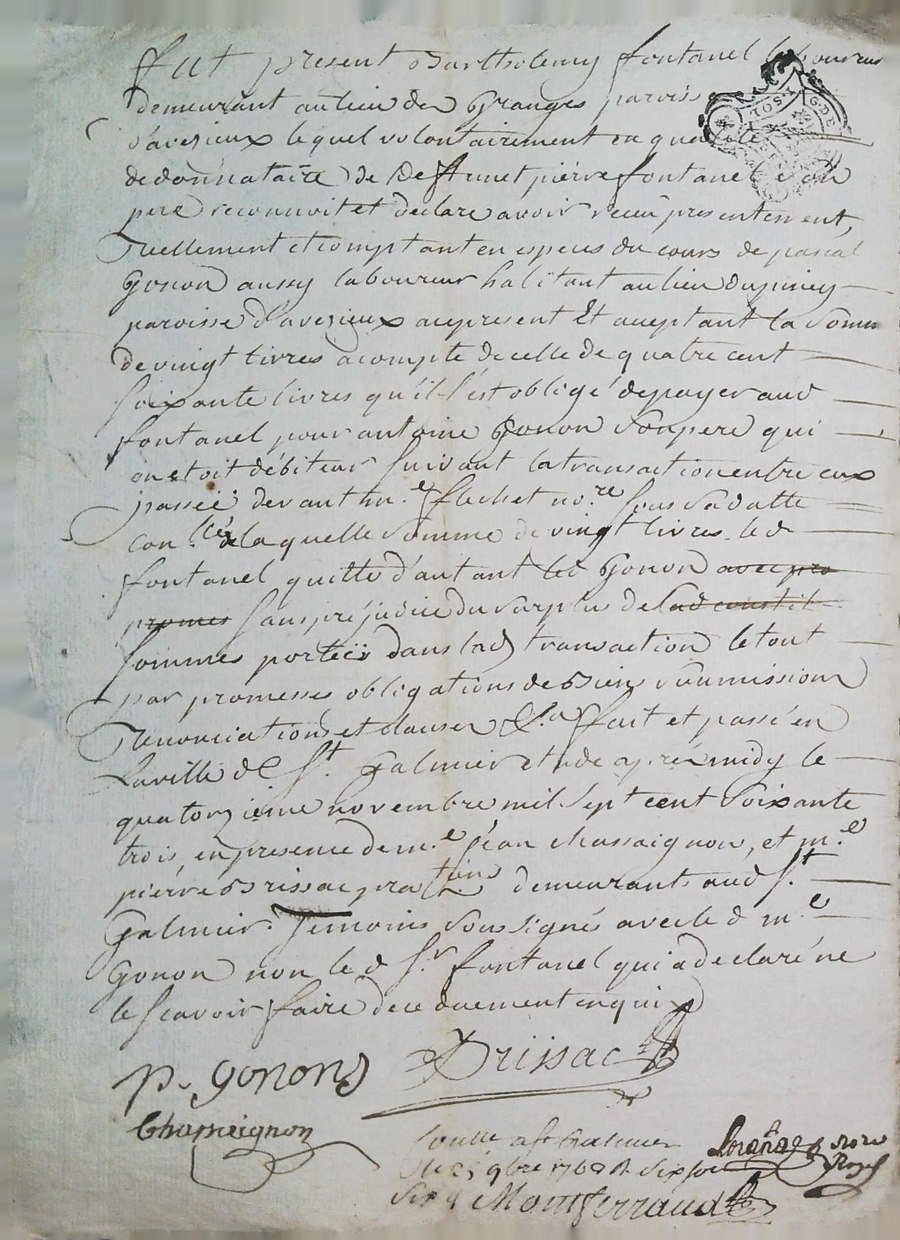 fut present Barthelemy fontanel laboureur
demeurant au lieu des Granges parroisse
d'avezieux lequel volontairement en qualité
de donnataire de Deffunct pierre fontanel son
pere reconnoit et declare avoir receu presentement,
reellement et comptant en especes du cours de pascal
Gonon aussy laboureur habitant au lieu du piney
paroisse d'avezieux acy present Et acceptant la somme
de vingt livres a compte de celle de quatre cent
soixante livres qu'il s'est obligé de payer aud
fontanel pour antoine Gonon son pere qui
en etoit débiteur suivant la transaction entre eux
passée devant m.e flechet no.re sous sa datte
con.llée de laquelle somme de vingt livres led
fontanel quitte d'autant led Gonon avec pro
promes sans préjudice du surplus de lad constit
sommes portées dans lad transaction le tout
par promesses obligations de Biens soumissions
renonciations et clauses &.a fait et passé en
la ville de S.t Galmier etude après midy le
quatorzieme novembre mil sept cent soixante
trois, en presence de m.e jean chassaignon, et m.e
pierre Brissac praticiens demeurants aud S.t
Galmier. temoins soussignés avec led m.e
Gonon non led S.r fontanel qui a declaré ne
le scavoir faire de ce duement enquis
p. gonon Brissac
Chassaignon
Controllé a St Galmier Lorange no.re Royal
le 25 9bre 1763 R six sols
six d Montferrand